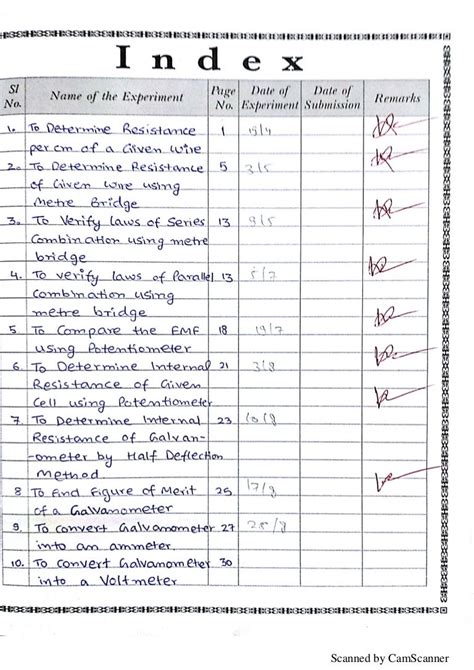 Index
Sl No. Name of the Experiment Page No. Date of Experiment Date of Submission Remarks
1. To Determine Resistance 1
per cm of a Given wire
2. To Determine Resistance 5 3/5
of Given wire using
Metre Bridge
3. To Verify laws of Series 13 9/5
Combination using metre
bridge
4. To verify laws of Parallel 13 5/7
Combination using
metre bridge
5. To Compare the EMF 18 19/7
using Potentiometer
6. To Determine Internal 21 3/8
Resistance of Given
Cell using Potentiometer
7. To Determine Internal 23 10/8
Resistance of Galvan-
-ometer by Half Deflection
Method
8 To find Figure of Merit 25 17/8
of a Galvanometer
9. To convert Galvanometer 27 25/8
into an ammeter.
10. To convert Galvanometer 30
into a Voltmeter
Scanned by CamScanner